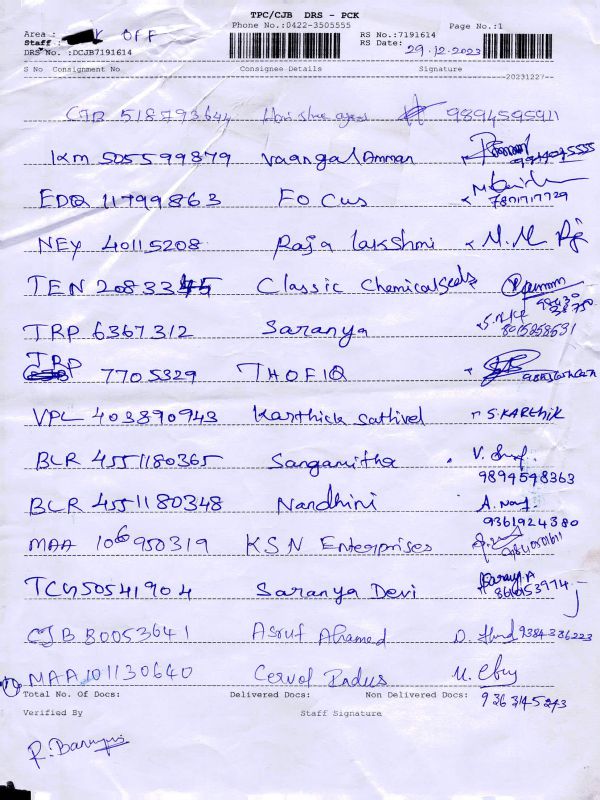 TPC/CJB DRS - PCK
Phone No.:0422-3505555 Page No.:1
Area : OFF RS No.:7191614
Staff: RS Date: 29.12.2023
DRS No. :DCJB7191614
S No Consignment No Consignee Details Signature
20231227
CJB 518793644 9894595911
KM 505599879 Vaangal Amman
EDQ 11799863 Focus 7801717729
NEY 40115208 Raja lakshmi M.M
TEN 20833 Classic Chemical
TRP 6367312 Saranya 8015858531
TRP 7705329 THOFIQ
VPL 403890943 Karthick Sathivel S.KARTHIK
BLR 4551180365 Sangamitha V. 9894598363
BLR 4551180348 Nandhini A. 9361924380
MAA 106950319 KSN Enterprises
TCG 50541904 Saranya Devi 860153974
CJB B0053641 Asruf Ahamed D. 9384336223
MAA 101130640 M. 9363145243
Total No. Of Docs: Delivered Docs: Non Delivered Docs:
Verified By Staff Signature
R.